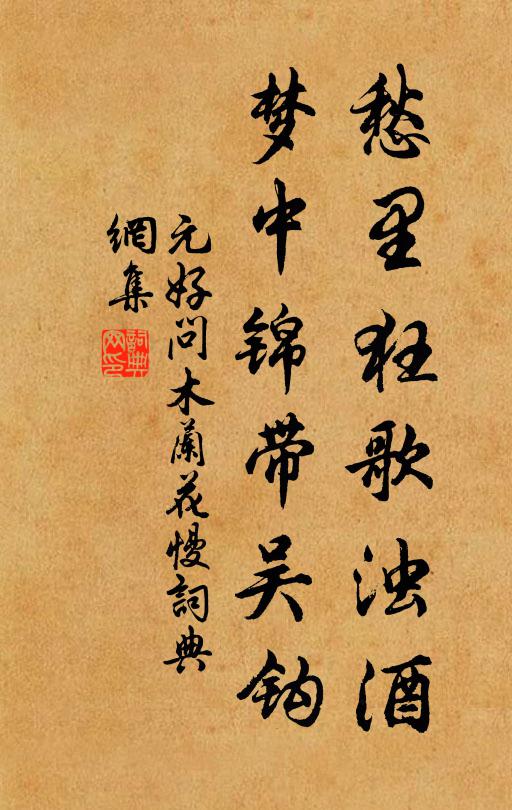 愁里狂歌浊酒
梦中锦带吴钩
元好问木蘭花慢詞典
網集
詞典网印